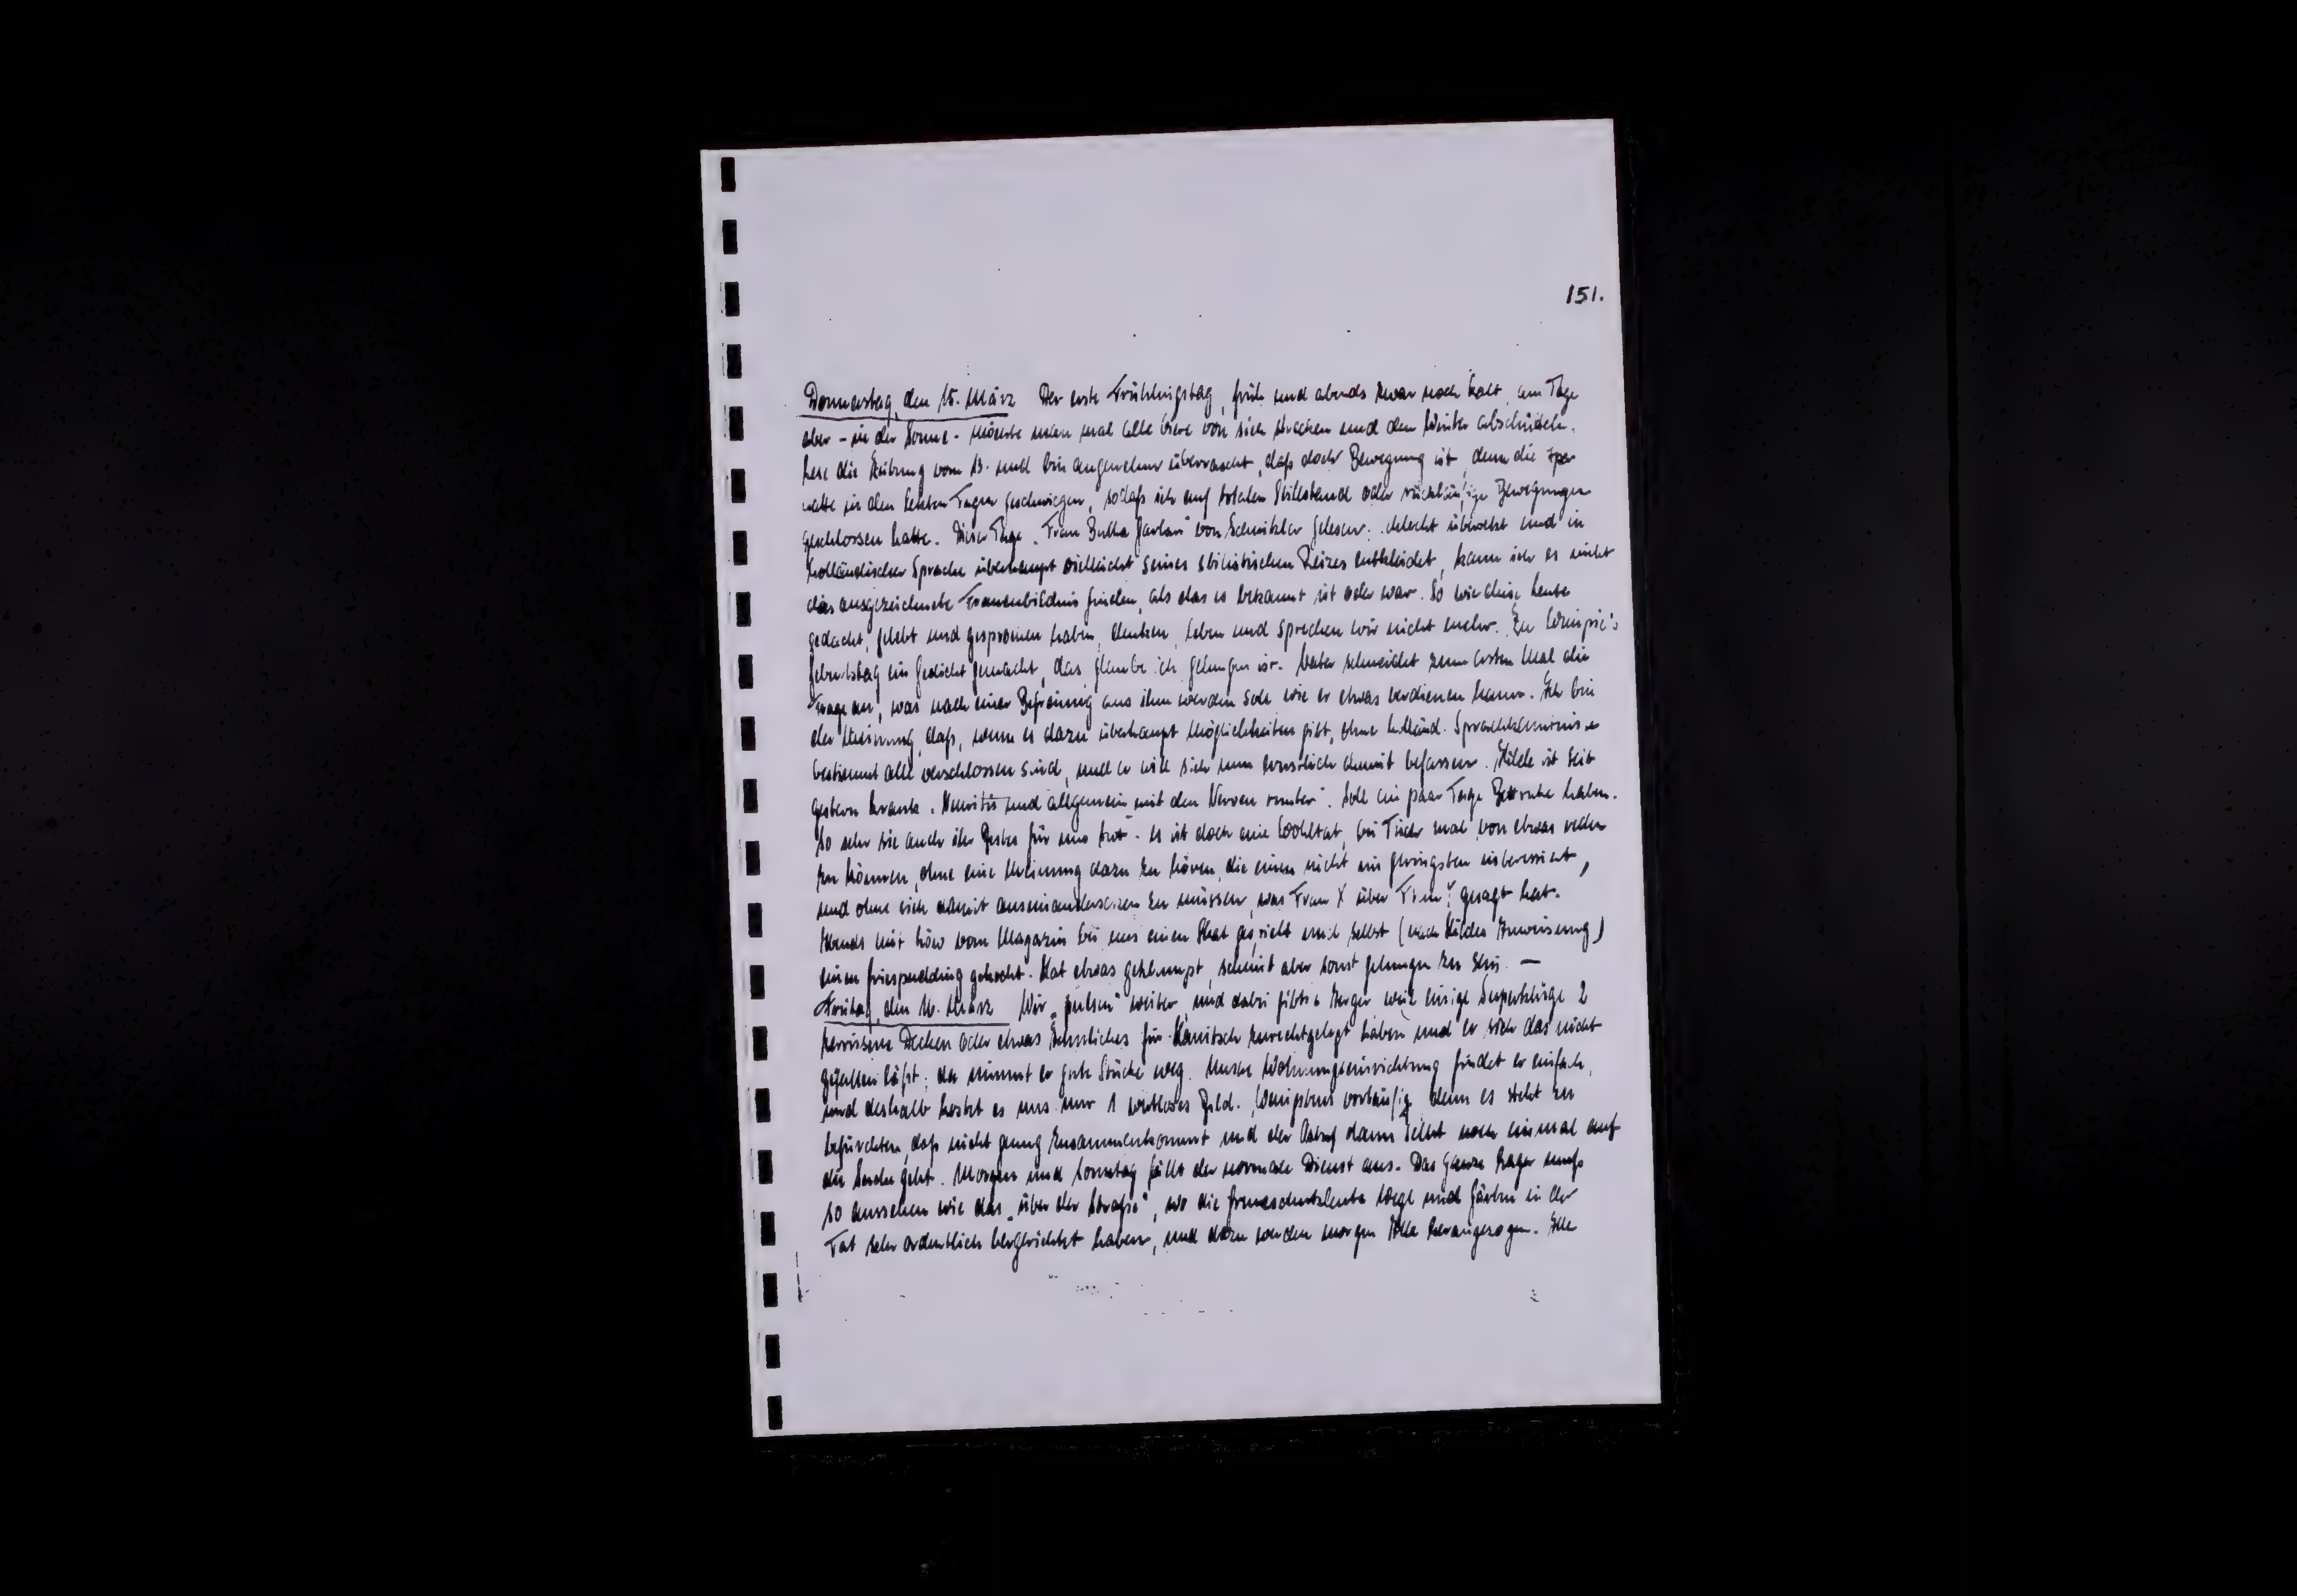 151.
Donnerstag, den 15. März Der erste Frühlingstag, früh und abends zwar noch kalt, am Tage
aber - in der Sonne - möchte man mal alle Viere von sich strecken und den Winter abschütteln.
Lese die Zeitung vom 13. und bin angenehm überrascht, daß doch Bewegung ist, denn die
hatte in den letzten Tagen geschwiegen, sodaß ich auf totalen Stillstand oder rückläufige Bewegungen
geschlossen hatte. Dieser Tage „Frau Bertha Garlan" von Schnitzler gelesen: schlecht übersetzt und in
holländischer Sprache überhaupt vielleicht seines stilistischen Reizes entkleidet, kann ich es nicht
das ausgezeichnete Frauenbildnis finden, als das es bekannt ist oder war. So wie diese Leute
gedacht, gelebt und gesprochen haben, denken, leben und sprechen wir nicht mehr. Zu
Geburtstag ein Gedicht gemacht, das glaube ich gelungen ist. Vater schneidet zum ersten Mal die
Frage an, was nach einer Befreiung aus ihm werden soll wie er etwas verdienen kann. Ich bin
der Meinung, daß, wenn es dazu überhaupt Möglichkeiten gibt, ohne holländ. Sprachkenntnisse
bestimmt alle verschlossen sind, und er will sich nun ernstlich damit befassen. Hilde ist seit
gestern krank. Neuritis und allgemein „mit den Nerven runter". Soll ein paar Tage Bettruhe haben.
So sehr sie auch ihr Bestes für uns tut - es ist doch eine Wohltat, bei Tisch mal von etwas reden
zu können, ohne eine Meinung dazu zu hören, die einen nicht im geringsten interessiert,
und ohne sich damit auseinandersetzen zu müssen, was Frau X über Frau Y gesagt hat.
Abends mit Löw vom Magazin bei uns einen Skat gespielt und selbst (nach Hildes Anweisung)
einen Griespudding gekocht. Hat etwas geklumpt, scheint aber sonst gelungen zu sein. —
Freitag, den 16. März Wir „pulsen" weiter, und dabei gibts Aerger weil einige Superkluge 2
zerrissene Decken oder etwas Aehnliches für Hanitsch zurechtgelegt haben und er sich das nicht
gefallen läßt; da nimmt er gute Stücke weg. Unsere Wohnungseinrichtung findet er einfach,
und deshalb kostet es uns nur 1 wertloses Bild. Wenigstens vorläufig denn es steht zu
befürchten, daß nicht genug zusammenkommt und der dann selbst noch einmal auf
die Suche geht. Morgen und Sonntag fällt der normale Dienst aus. Das ganze Lager muß
so aussehen wie das „über der Straße", wo die Grueschutzleute Wege und Gärten in der
Tat sehr ordentlich hergerichtet haben, und dazu werden morgen Alle herangezogen. Alle